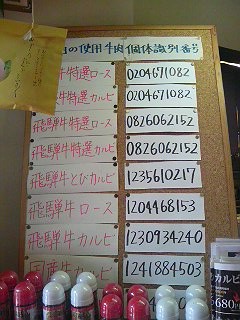 の使用牛肉個体識別番号
牛特選ロース 0204671082
牛特選カルビ 0204671082
飛騨牛特選ロース 0826062152
飛騨牛特選カルビ 0826062152
飛騨牛とびカルビ 1235610217
飛騨牛ロース 1204468153
飛騨牛カルビ 1230934240
国産牛カルビ 1241884503
カルビ
680